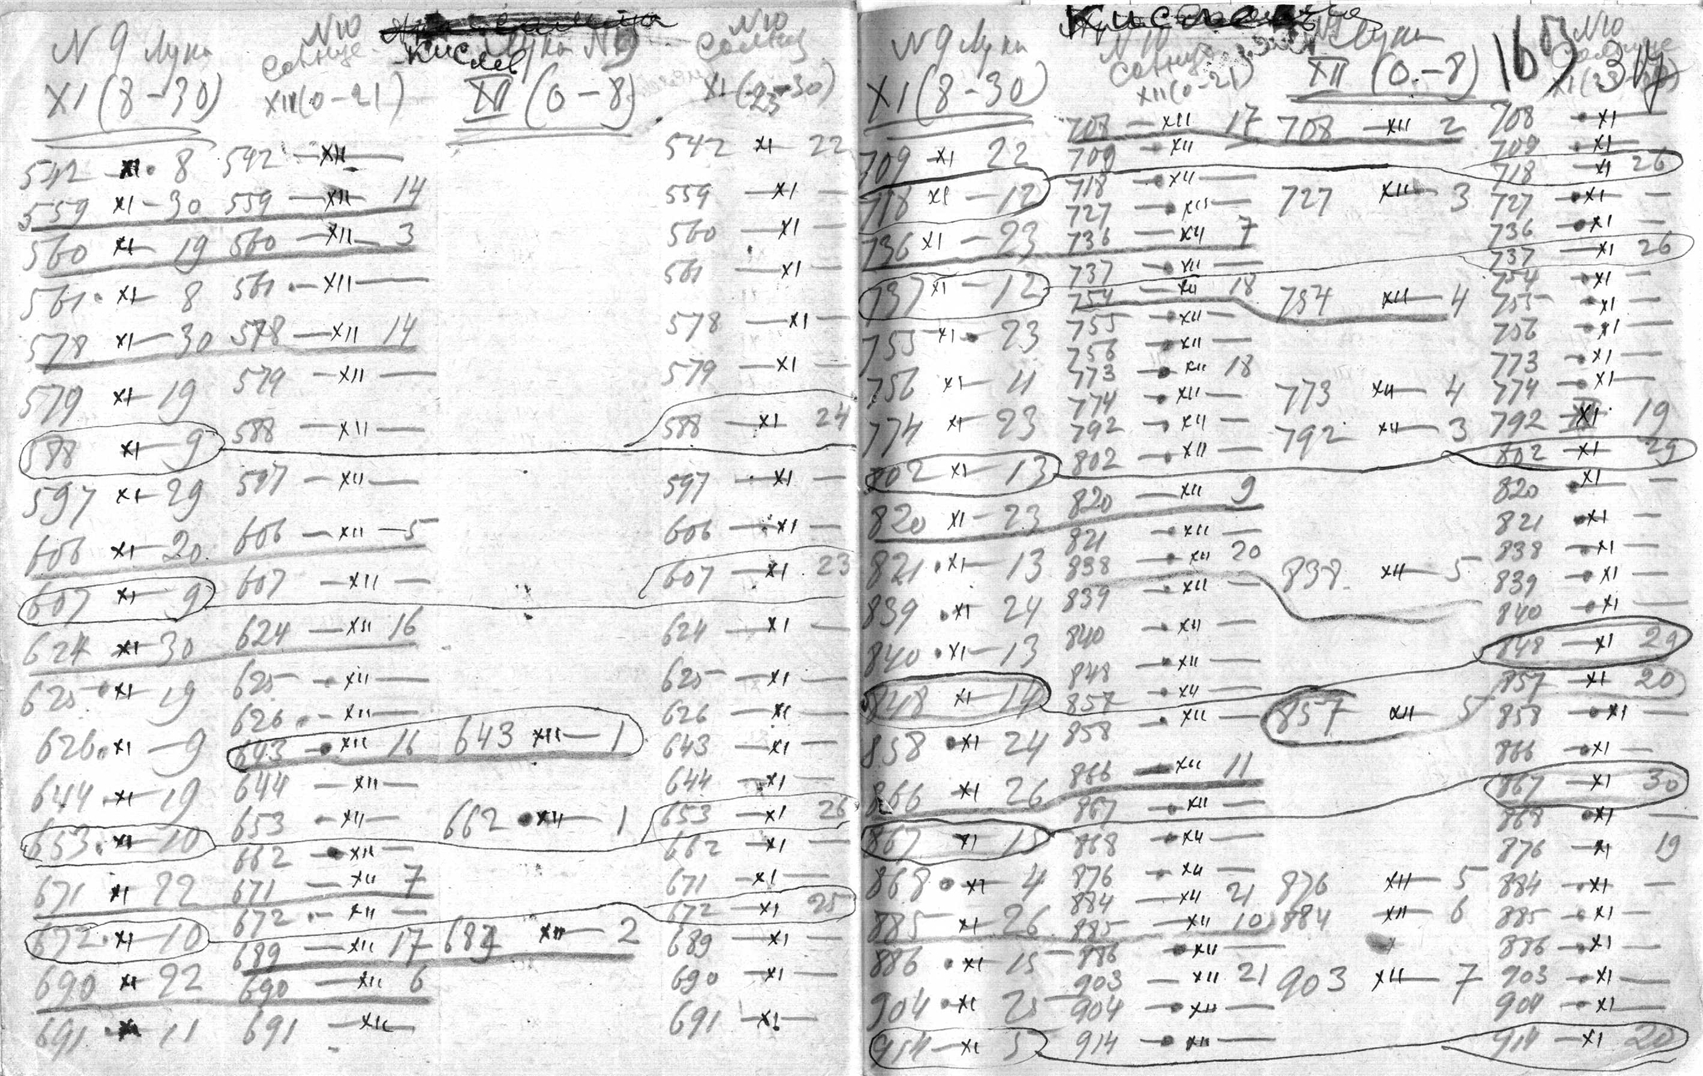 N 9 Луна
XI (8-30)
542 XI 8
559 XI - 30
560 XI - 19
561 XI - 8
578 XI - 30
579 XI - 19
588 XI - 9
597 XI - 29
606 XI - 20
607 XI - 9
624 XI - 30
625 XI - 19
626 XI - 9
644 XI - 19
653 XI - 10
671 XI 22
672 XI - 10
690 XI - 22
691 XI - 11
N 10
Солнце
XII (0-21)
542 — XII —
559 — XII 14
560 — XII 3
561 — XII —
578 — XII 14
579 — XII —
588 — XII —
597 — XII —
606 — XII — 5
607 — XII —
624 — XII 16
625 — XII —
626 — XII —
643 — XII 16
644 — XII —
653 — XII —
662 — XII —
671 — XII 7
672 — XII —
689 — XII 17
690 — XII 6
691 — XII —
Кислев
Луна N 9
XII (0-8)
643 XII - 1
662 XII - 1
689 XII - 2
N 10
Солнц
XI (23-30)
542 XI 22
559 — XI —
560 — XI —
561 — XI —
578 — XI —
579 — XI —
588 — XI 24
597 — XI —
606 — XI —
607 — XI 23
624 — XI —
625 — XI —
626 — XI —
643 — XI —
644 — XI —
653 — XI 26
662 — XI —
671 — XI —
672 — XI 25
689 — XI —
690 — XI —
691 — XI —
N 9 Луна
XI (8-30)
709 - XI 22
718 XI - 12
736 XI - 23
737 XI - 12
755 XI - 23
756 XI - 11
774 XI - 23
802 XI - 13
820 XI - 23
821 XI - 13
839 XI - 24
840 XI - 13
848 XI - 14
858 XI - 24
866 XI - 26
867 XI - 15
868 XI - 4
885 XI - 26
886 XI - 15
904 XI - 25
914 XI 5
N 10
Солнце
XII (0-21)
708 — XII 17
709 — XII
718 — XII —
727 — XII —
736 — XII 7
737 — XII —
754 — XII 18
755 — XII —
756 — XII —
773 — XII 18
774 — XII —
792 — XII —
802 — XII —
820 — XII 9
821 — XII —
838 — XII 20
839 — XII —
840 — XII —
848 — XII —
857 — XII —
858 — XII —
866 — XII 11
867 — XII —
868 — XII —
876 — XII —
884 — XII 21
885 — XII 10
886 — XII —
903 — XII 21
904 — XII —
914 — XII —
Луна
XII (0-8)
708 XII 2
727 XII - 3
754 XII - 4
773 XII - 4
792 XII - 3
838 XII - 5
857 XII - 5
876 XII - 5
884 XII - 6
903 XII - 7
N 10
708 — XI —
709 — XI —
718 — XI 26
727 — XI —
736 — XI —
737 — XI 26
754 — XI —
755 — XI —
756 — XI —
773 — XI —
774 — XI —
792 — XI 19
802 — XI 29
820 — XI —
821 — XI —
838 — XI —
839 — XI —
840 — XI —
848 — XI 29
857 — XI 20
858 — XI —
866 — XI —
867 — XI 30
868 — XI —
876 — XI 19
884 — XI —
885 — XI —
886 — XI —
903 — XI —
904 — XI —
914 — XI 20